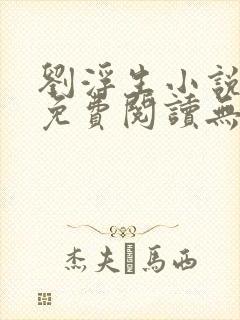 劉浮生小說
免費閱讀無
杰夫 馬西